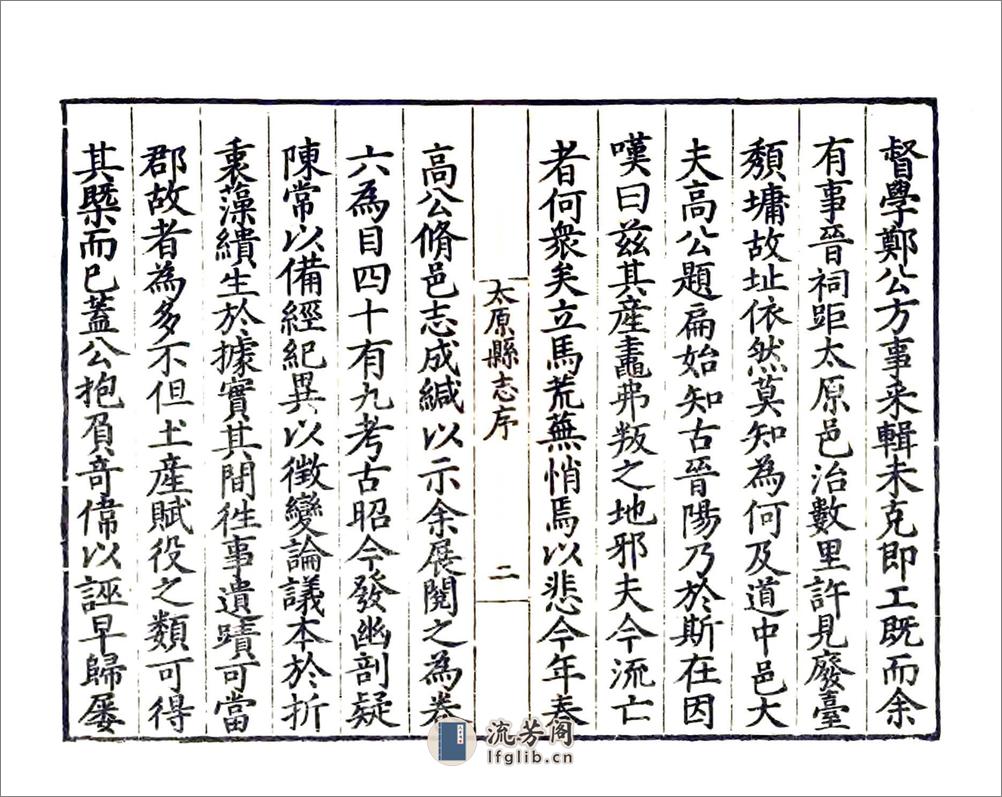 督學鄭公方事采輯未克即工既而余
有事晉祠距太原邑治數里許見廢臺
頹墉故址依然莫知為何及道中邑大
夫高公題扁始知古晉陽乃於斯在因
嘆曰兹其產鼃弗叛之地邪夫今流亡
者何衆矣立馬荒蕪悄焉以悲今年春
太原縣志序
二
高公脩邑志成緘以示余展閱之為卷
六為目四十有九考古昭今發幽剖疑
陳常以備經紀異以徵變論議本於折
衷藻繢生於據實其間徃事遺蹟可當
郡故者為多不但土産賦役之類可得
其槩而已蓋公抱負竒偉以誣早歸屡
流芳阁
lfglib.cn